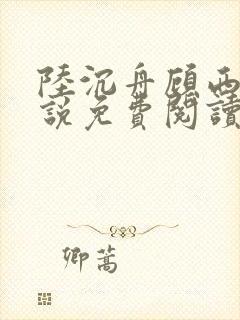 陸沉舟顾西
說免費閱讀
卿蒿